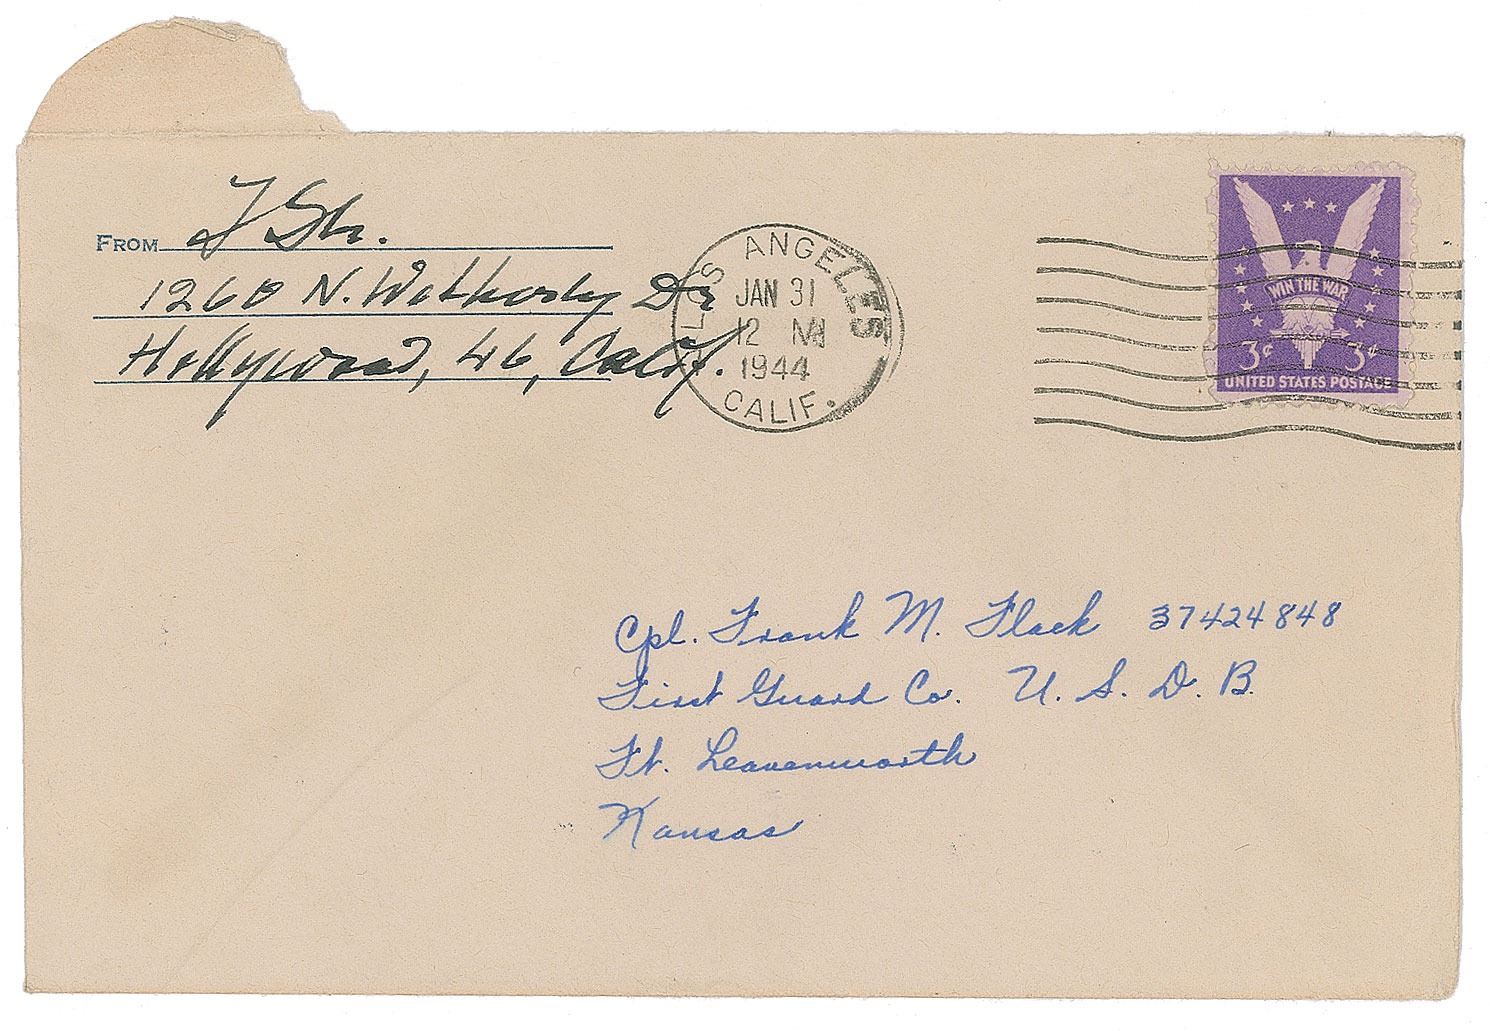 FROM I Str.
1260 N. Wetherly Dr
Hollywood, 46, Calif.
LOS ANGELES
JAN 31
12 M
1944
CALIF.
WIN THE WAR
3¢ 3¢
UNITED STATES POSTAGE
Cpl. Frank M. Flack 37424848
First Guard Co. U. S. D. B.
Ft. Leavenworth
Kansas